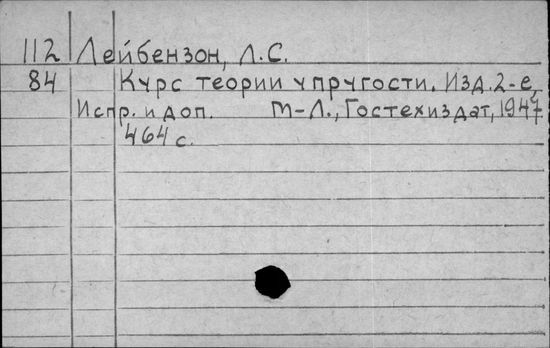 112 Лейбензон, Л.С.
84 Курс теории упругости. Изд. 2-е,
Испр. и доп. М-Л., Гостехиздат, 1947
464 с.